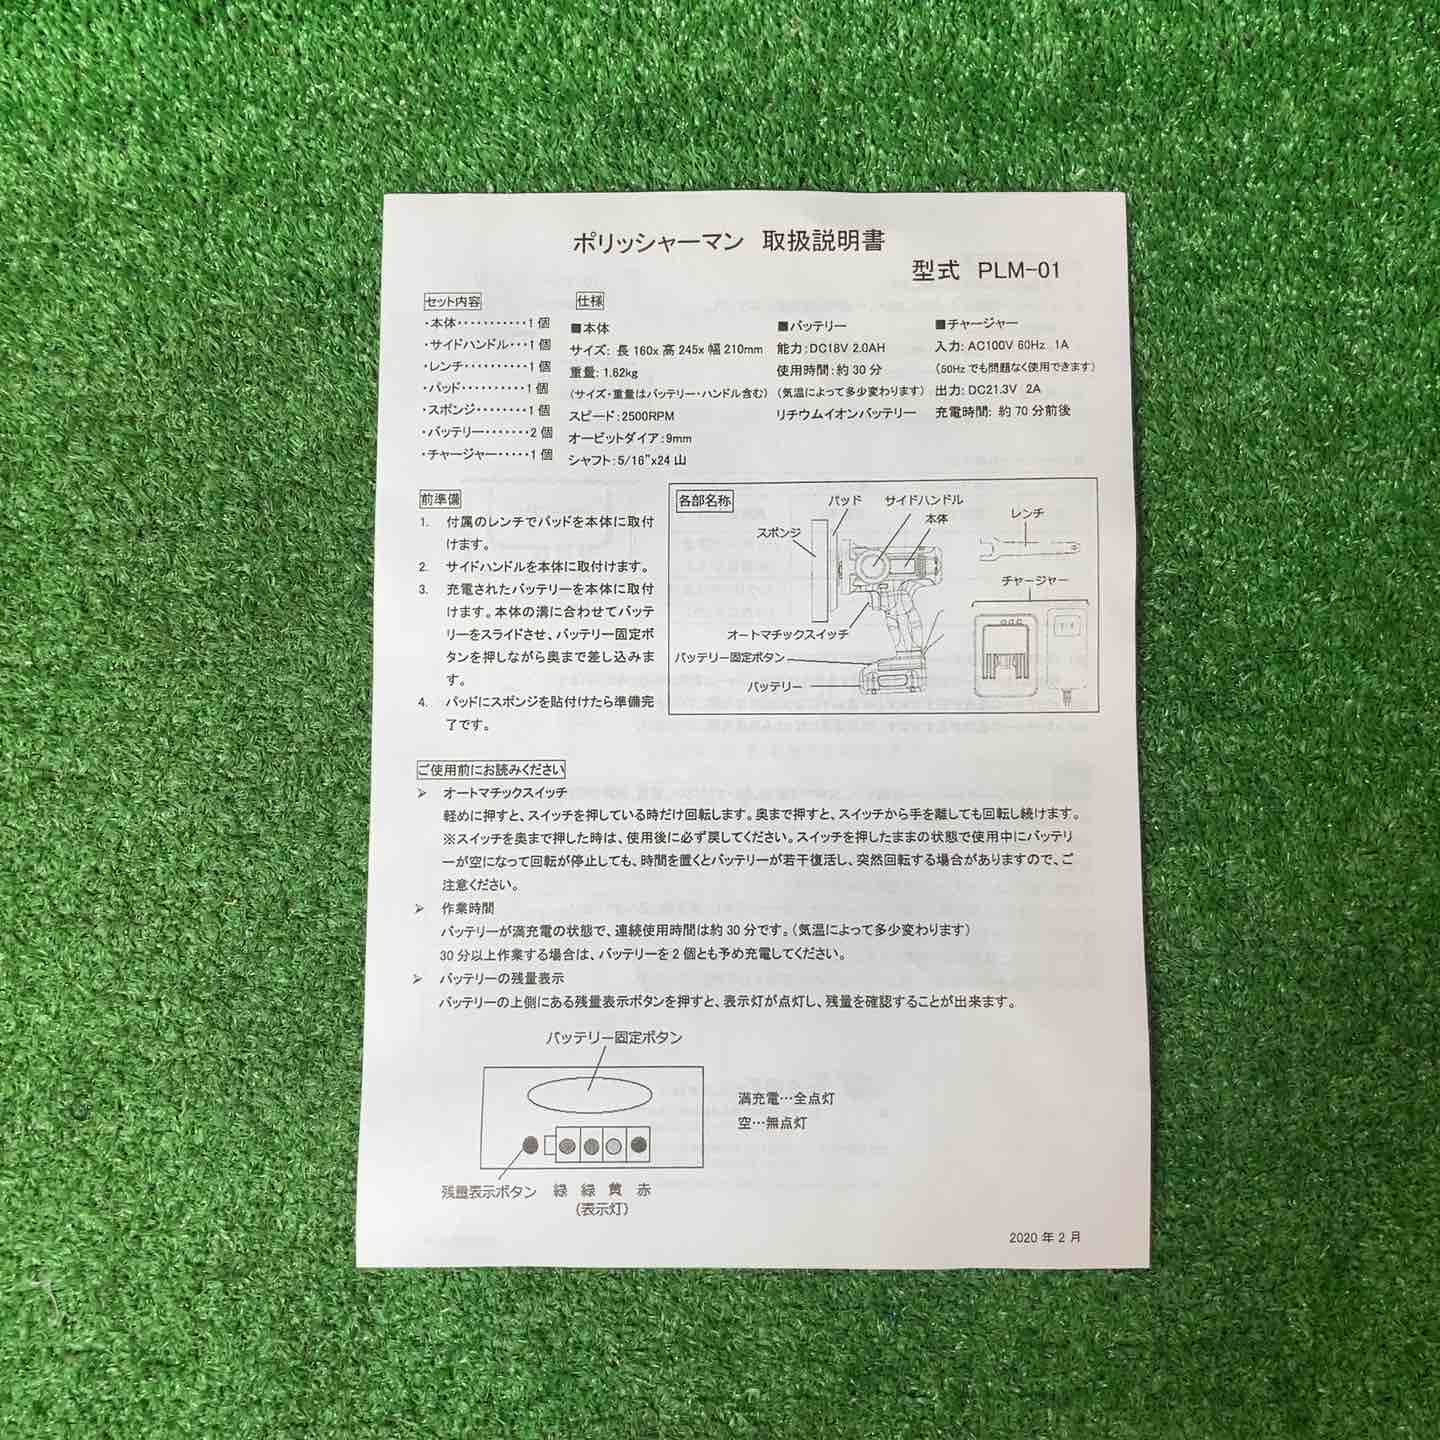 ポリッシャーマン 取扱説明書
型式 PLM-01
セット内容
・本体・・・・・・・・・・・1個
・サイドハンドル・・・1個
・レンチ・・・・・・・・・・1個
・パッド・・・・・・・・・・1個
・スポンジ・・・・・・・・1個
・バッテリー・・・・・・・2個
・チャージャー・・・・・1個
仕様
■本体
サイズ: 長160x高245x幅210mm
重量: 1.62kg
(サイズ・重量はバッテリー・ハンドル含む)
スピード:2500RPM
オービットダイア:9mm
シャフト:5/16"x24山
■バッテリー
能力:DC18V 2.0AH
使用時間:約30分
(気温によって多少変わります)
リチウムイオンバッテリー
■チャージャー
入力: AC100V 60Hz 1A
(50Hzでも問題なく使用できます)
出力: DC21.3V 2A
充電時間: 約70分前後
前準備
1. 付属のレンチでパッドを本体に取付
けます。
2. サイドハンドルを本体に取付けます。
3. 充電されたバッテリーを本体に取付
けます。本体の溝に合わせてバッテ
リーをスライドさせ、バッテリー固定ボ
タンを押しながら奥まで差し込みま
す。
4. パッドにスポンジを貼付けたら準備完
了です。
各部名称
パッド
サイドハンドル
本体
レンチ
スポンジ
チャージャー
オートマチックスイッチ
バッテリー固定ボタン
バッテリー
ご使用前にお読みください
➢ オートマチックスイッチ
軽めに押すと、スイッチを押している時だけ回転します。奥まで押すと、スイッチから手を離しても回転し続けます。
※スイッチを奥まで押した時は、使用後に必ず戻してください。スイッチを押したままの状態で使用中にバッテリ
ーが空になって回転が停止しても、時間を置くとバッテリーが若干復活し、突然回転する場合がありますので、ご
注意ください。
➢ 作業時間
バッテリーが満充電の状態で、連続使用時間は約30分です。(気温によって多少変わります)
30分以上作業する場合は、バッテリーを2個とも予め充電してください。
➢ バッテリーの残量表示
バッテリーの上側にある残量表示ボタンを押すと、表示灯が点灯し、残量を確認することが出来ます。
バッテリー固定ボタン
満充電…全点灯
空…無点灯
残量表示ボタン 緑 緑 黄 赤
(表示灯)
2020年2月